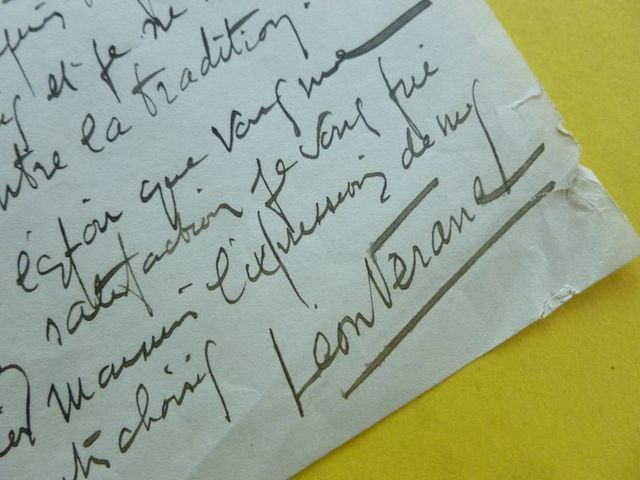 et je ne
contre la tradition.
l'espoir que vous me
satisfaction je vous prie
Monsieur l'expression de mes
choisis
Léon Vérane